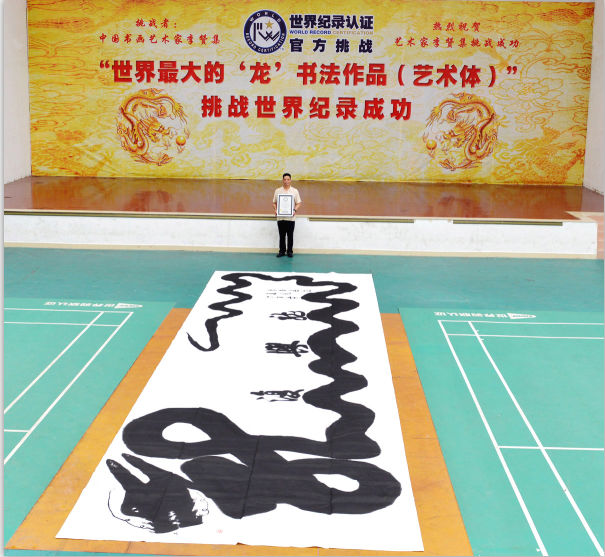 挑战者：
中国书画艺术家李贤集
世界纪录认证
WORLD RECORD CERTIFICATION
官方挑战
热烈祝贺
艺术家李贤集挑战成功
“世界最大的‘龙’书法作品（艺术体）”
挑战世界纪录成功
世界纪录认证
世界纪录认证